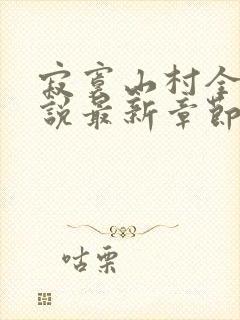 寂寞山村全
說最新章節
咕栗